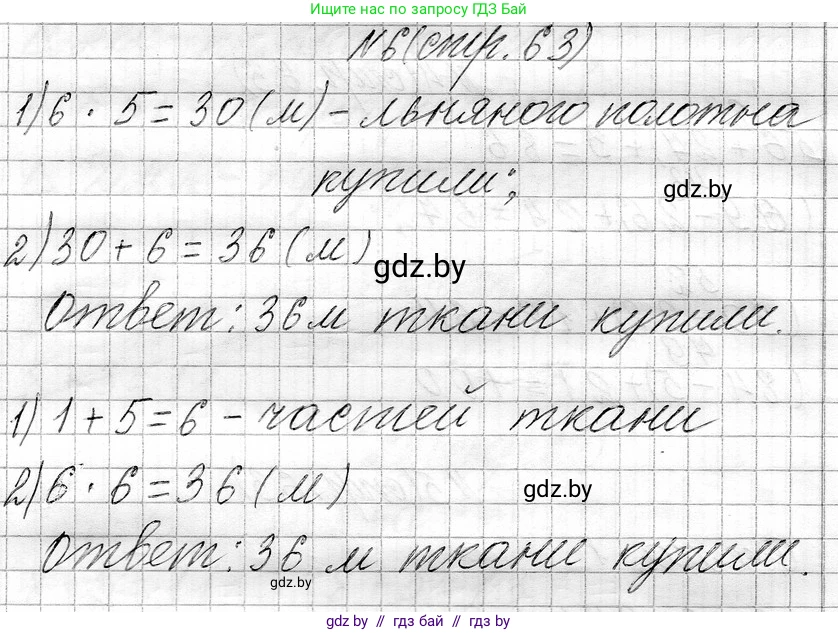 Ищите нас по запросу ГДЗ Бай
№6 (стр. 63)
1) 6 · 5 = 30 (м) - льняного полотна
купили;
gdz.by
2) 30 + 6 = 36 (м)
gdz.by
Ответ: 36 м ткани купили.
1) 1 + 5 = 6 - частей ткани
2) 6 · 6 = 36 (м)
gdz.by
Ответ: 36 м ткани купили.
gdz.by
gdz.by // гдз бай // gdz.by